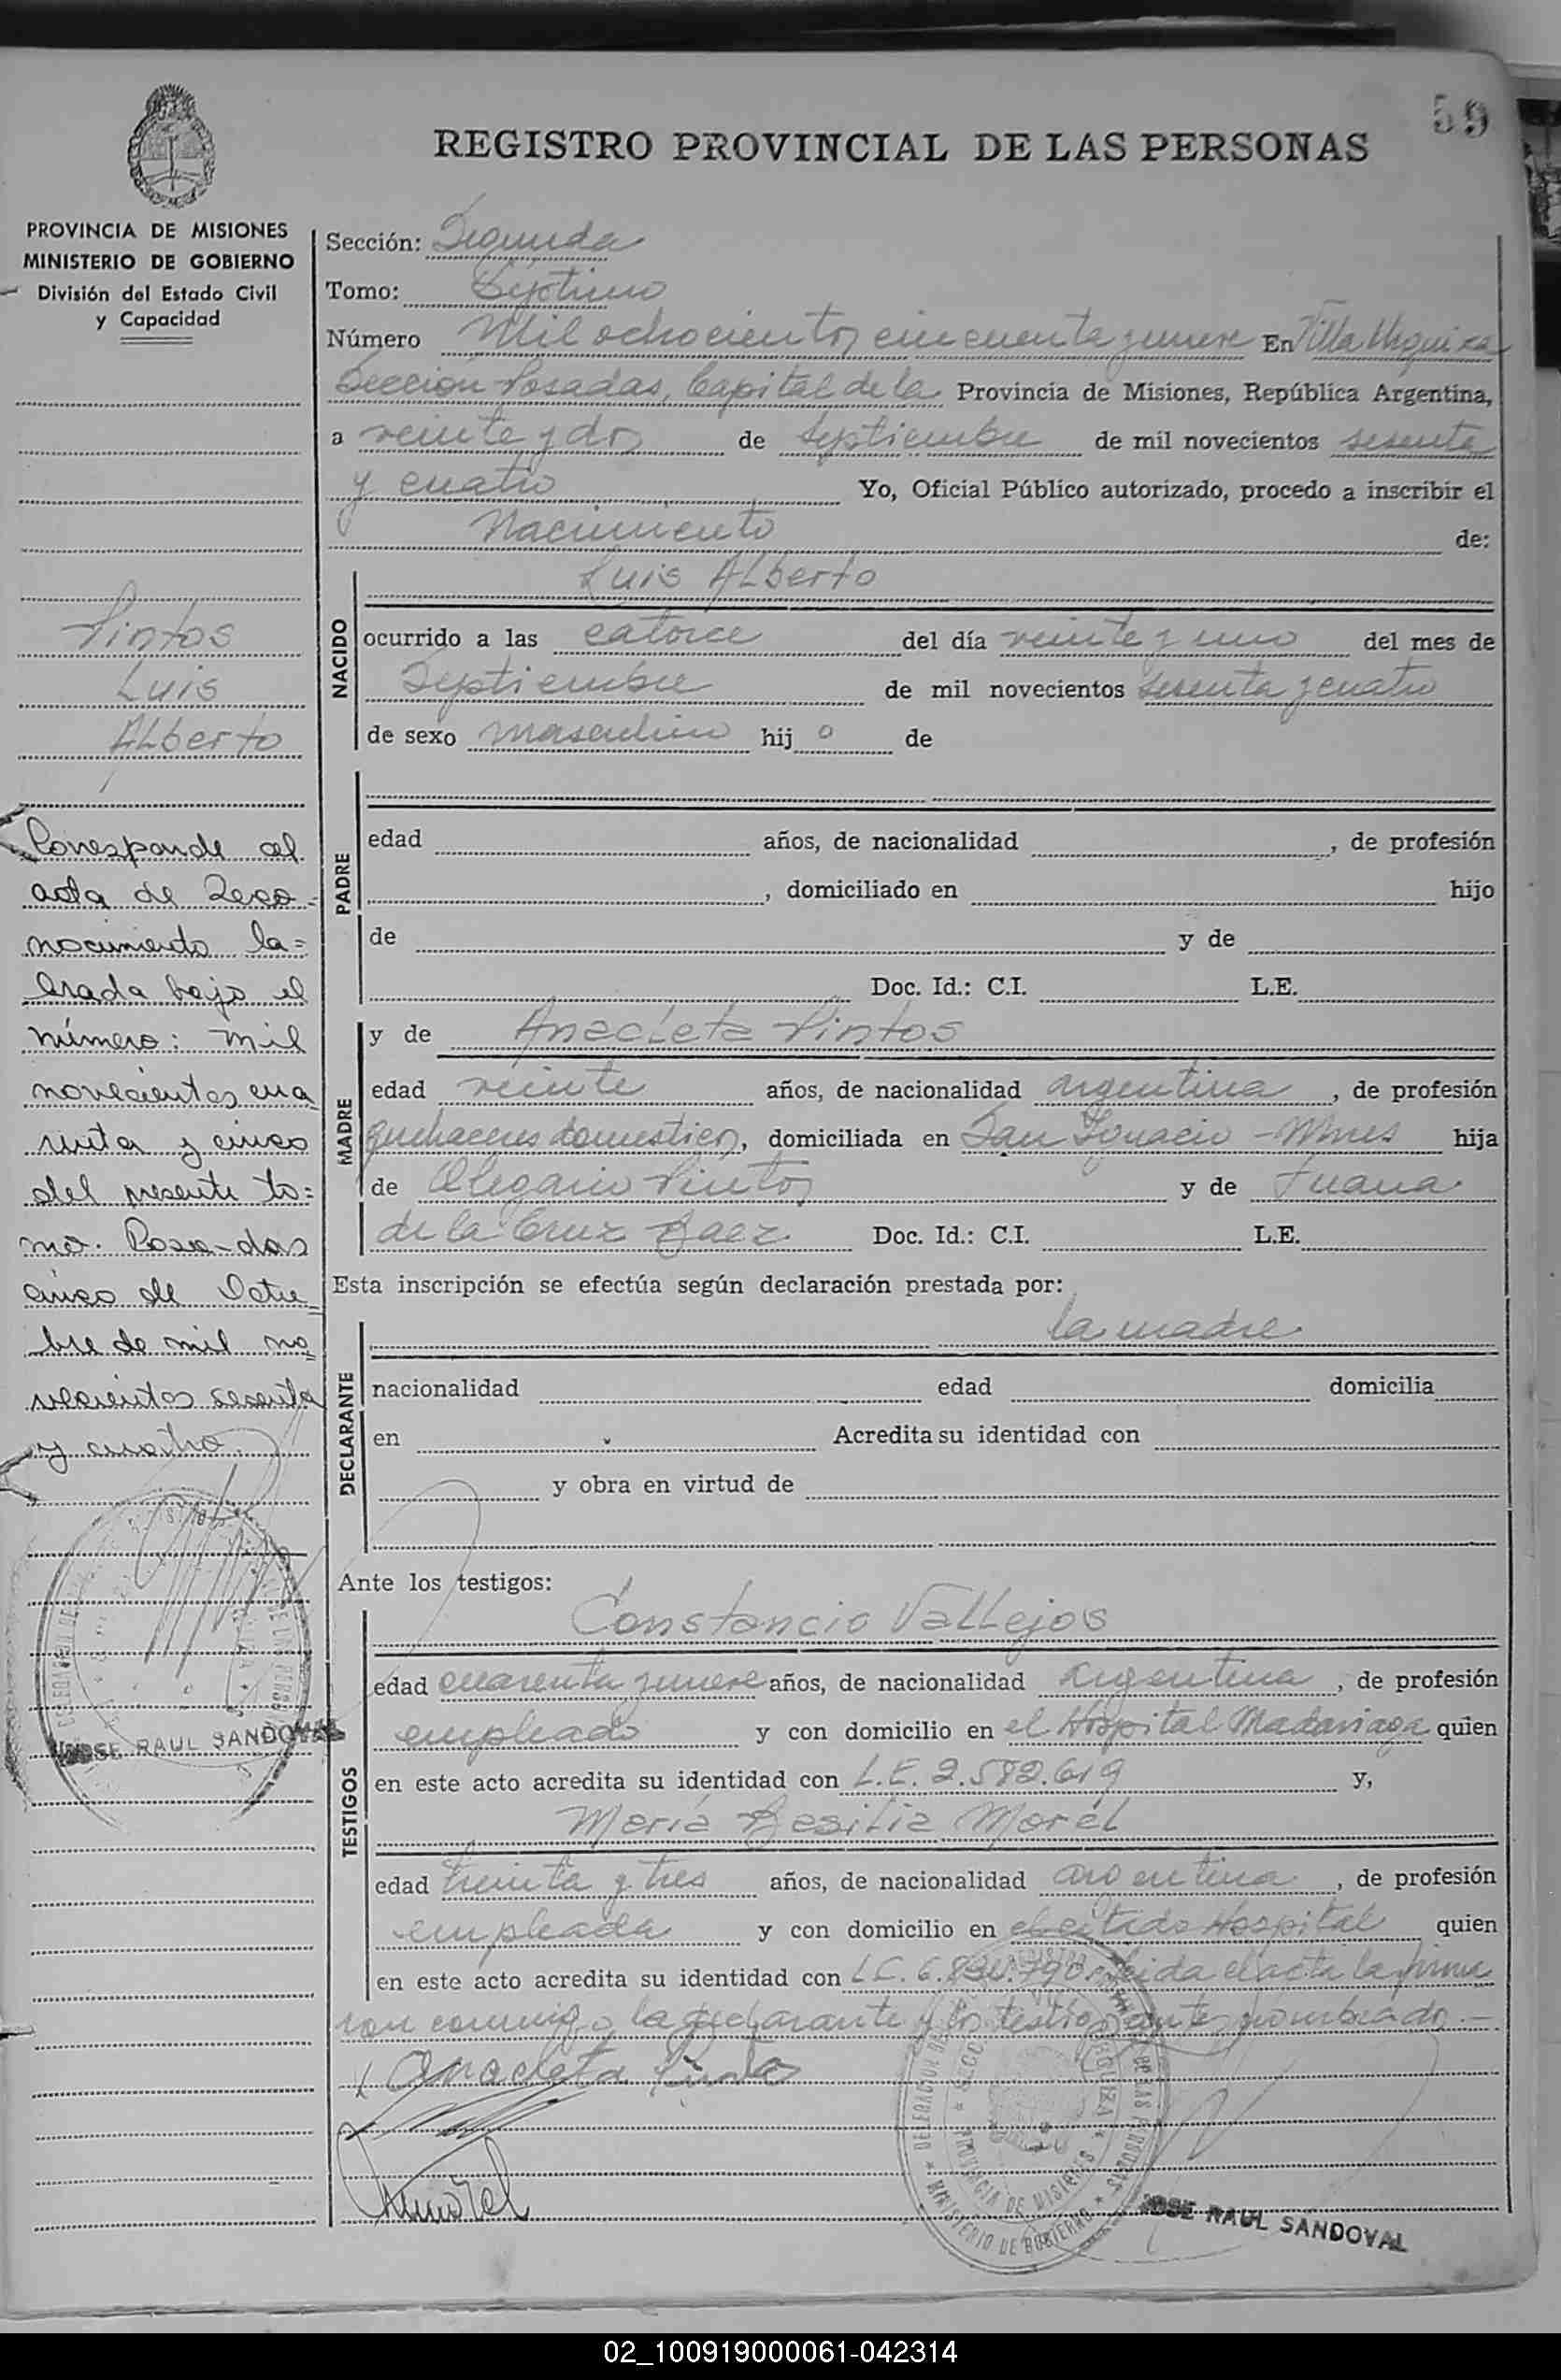 59
REGISTRO PROVINCIAL DE LAS PERSONAS
PROVINCIA DE MISIONES
MINISTERIO DE GOBIERNO
División del Estado Civil
y Capacidad
Sección: Segunda
Tomo: Séptimo
Número Mil ochocientos cincuenta y nueve En Villa Urquiza
Sección Posadas, Capital de la Provincia de Misiones, República Argentina,
a veinte y dos de Septiembre de mil novecientos sesenta
y cuatro Yo, Oficial Público autorizado, procedo a inscribir el
Nacimiento de:
Pintos
Luis
Alberto
Corresponde al
acta de Reco=
nocimiento la=
brada bajo el
número: mil
novecientos cua
renta y cinco
del presente to=
mo. Posa-das
cinco de Octu
bre de mil no
vecientos sesenta
y cuatro.
JOSE RAUL SANDOVAL
NACIDO
Luis Alberto
ocurrido a las catorce del día veinte y uno del mes de
Septiembre de mil novecientos sesenta y cuatro
de sexo masculino hij o de
PADRE
edad años, de nacionalidad , de profesión
, domiciliado en hijo
de y de
Doc. Id.: C.I. L.E.
MADRE
y de Anacleta Pintos
edad veinte años, de nacionalidad argentina , de profesión
quehaceres domesticos, domiciliada en San Ignacio - Mnes hija
de Olegario Pintos y de Juana
de la Cruz Baez Doc. Id.: C.I. L.E.
Esta inscripción se efectúa según declaración prestada por:
DECLARANTE
la madre
nacionalidad edad domicilia
en Acredita su identidad con
y obra en virtud de
Ante los testigos:
TESTIGOS
Constancio Vallejos
edad cuarenta y nueve años, de nacionalidad argentina , de profesión
empleado y con domicilio en el Hospital Madariaga quien
en este acto acredita su identidad con L.E. 2.582.619 y,
María Basilia Morel
edad treinta y tres años, de nacionalidad argentina , de profesión
empleada y con domicilio en el citado Hospital quien
en este acto acredita su identidad con L.C. 6. leida el acta la firma
ron conmigo la declarante y los testigos antes nombrados.-
Anacleta Pinto
Morel
PROVINCIA DE MISIONES
MINISTERIO DE GOBIERNO
JOSE RAUL SANDOVAL
02_100919000061-042314